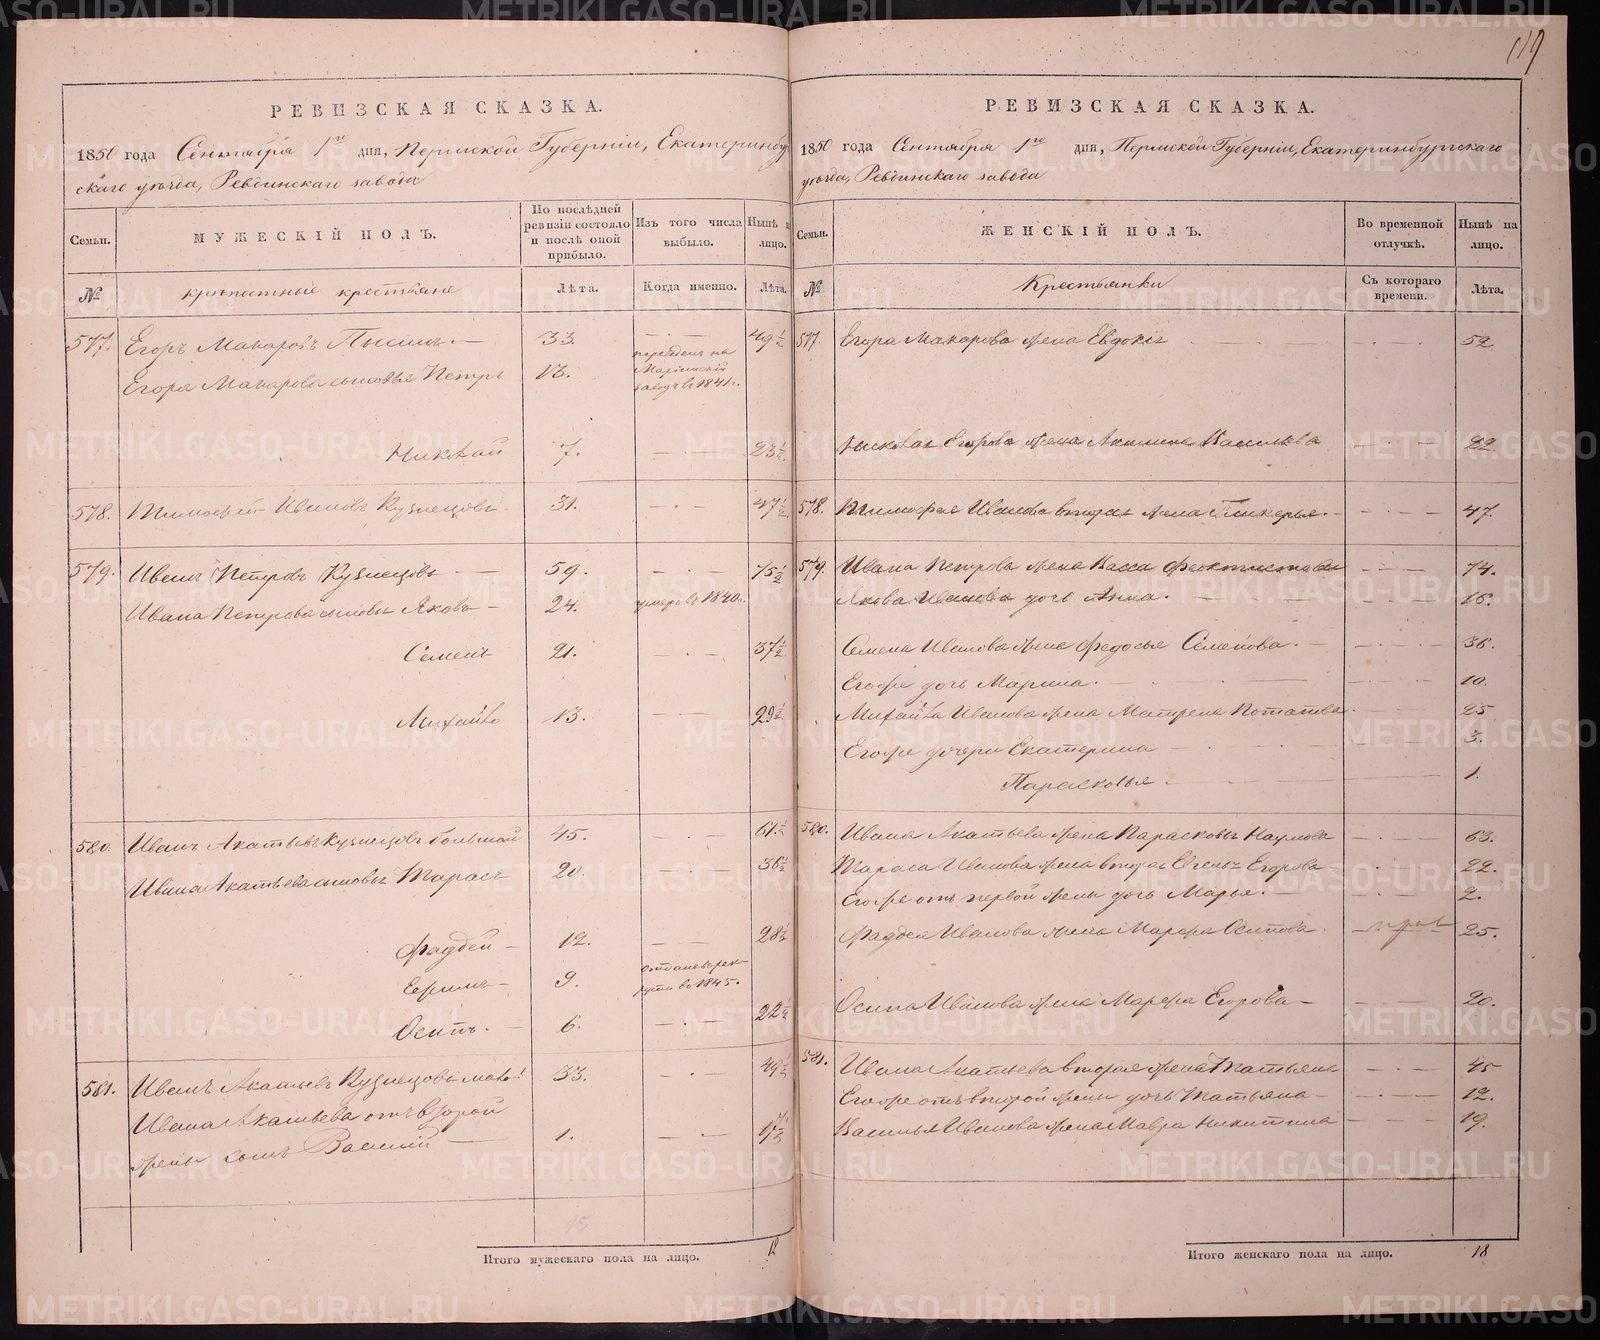 119
РЕВИЗСКАЯ СКАЗКА.
1850 года Сентября 1го дня, Пермской Губернiи, Екатеринбург
скаго уѣзда, Ревдинскаго завода
Семьи.
МУЖЕСКIЙ ПОЛЪ.
По послѣдней ревизiи состояло и послѣ оной прибыло.
Изъ того числа выбыло.
Нынѣ на лицо.
№
крѣпостные крестьяне
Лѣта.
Когда именно.
Лѣта.
577. Егоръ Макаровъ 33. 49½
Егора Макарова сыновья Петръ 13. переведенъ на Марiинскiй заводъ въ 1841.
Николай 7. 23½
578. Тимофей Ивановъ Кузнецовъ 31. 47½
579. Иванъ Петровъ Кузнецовъ 59. 75½
Ивана Петрова сыновья Яковъ 24. умеръ въ 1840.
Семенъ 21. 37½
Михайло 13. 29½
580. Иванъ Акатьевъ Кузнецовъ большой 45. 61½
Ивана Акатьева сыновья Тарасъ 20. 36½
Фаддей 12. 28½
Ефимъ 9. отданъ въ рекруты въ 1845.
Осипъ. 6. 22½
581. Иванъ Акатьевъ Кузнецовъ 33. 49½
Ивана Акатьева отъ второй
жены сынъ Василiй 1. 17½
15
Итого мужескаго пола на лицо. 12
РЕВИЗСКАЯ СКАЗКА.
1850 года Сентября 1го дня, Пермской Губернiи, Екатеринбургскаго
уѣзда, Ревдинскаго завода
Семьи.
ЖЕНСКIЙ ПОЛЪ.
Во временной отлучкѣ.
Нынѣ на лицо.
№
Крестьянки
Съ котораго времени.
Лѣта.
577. Егора Макарова жена Евдокiя 52
Николая Егорова жена Акилина Васильева 22.
578. Тимофея Иванова вторая жена Гликерья. 47.
579. Ивана Петрова жена Васса Феоктистова 74.
Якова Иванова дочь Анна. 16.
Семена Иванова жена Федосья Семенова. 36.
Его же дочь Марина. 10.
Михайла Иванова жена Матрена Потапова 25
Его же дочери Екатерина 3.
Парасковья 1.
580. Ивана Акатьева жена Парасковья Наумова 63.
Тараса Иванова жена вторая Егорова 22.
Его же отъ первой жены дочь Марья. 2.
Фаддея Иванова жена Марфа Осипова. 25.
Осипа Иванова жена Марфа Егорова 20.
581. Ивана Акатьева вторая жена Татьяна 45
Его же отъ второй жены дочь Татьяна 12.
Василья Иванова жена Мавра Никитина 19.
Итого женскаго пола на лицо. 18
METRIKI.GASO-URAL.RU